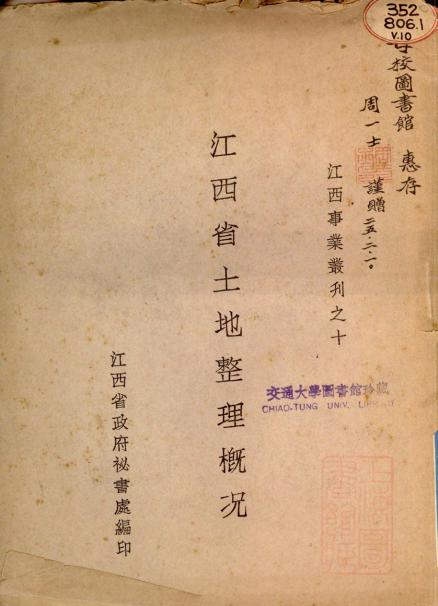 352
806.1
V.10
校圖書館 惠存
周一士 謹贈 二五.二.一。
江西事業叢刊之十
江西省土地整理概況
交通大學圖書館珍藏
CHIAO-TUNG UNIV. LIBRARY
江西省政府祕書處編印